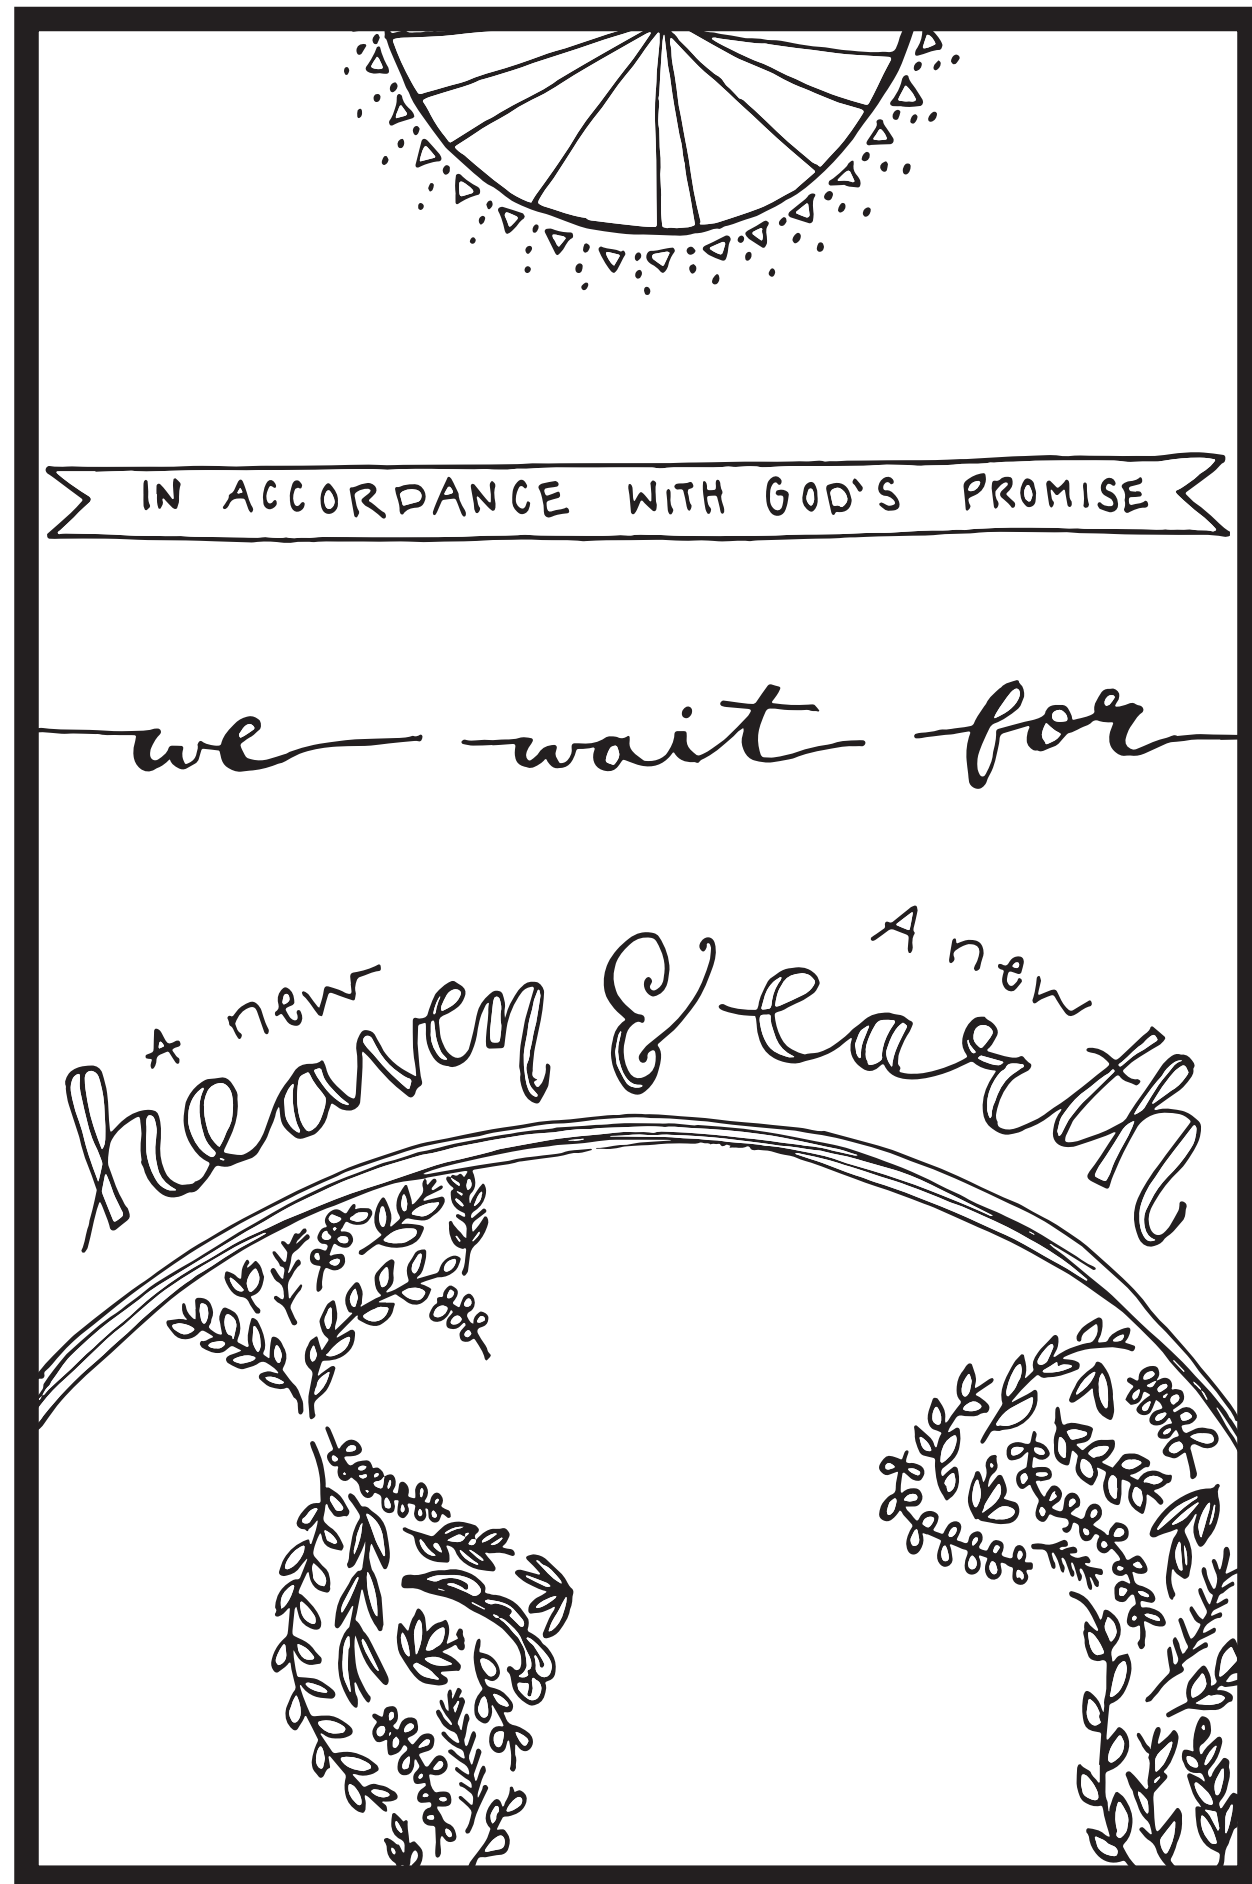 IN ACCORDANCE WITH GOD'S PROMISE
we wait for
A new A new
heaven & earth